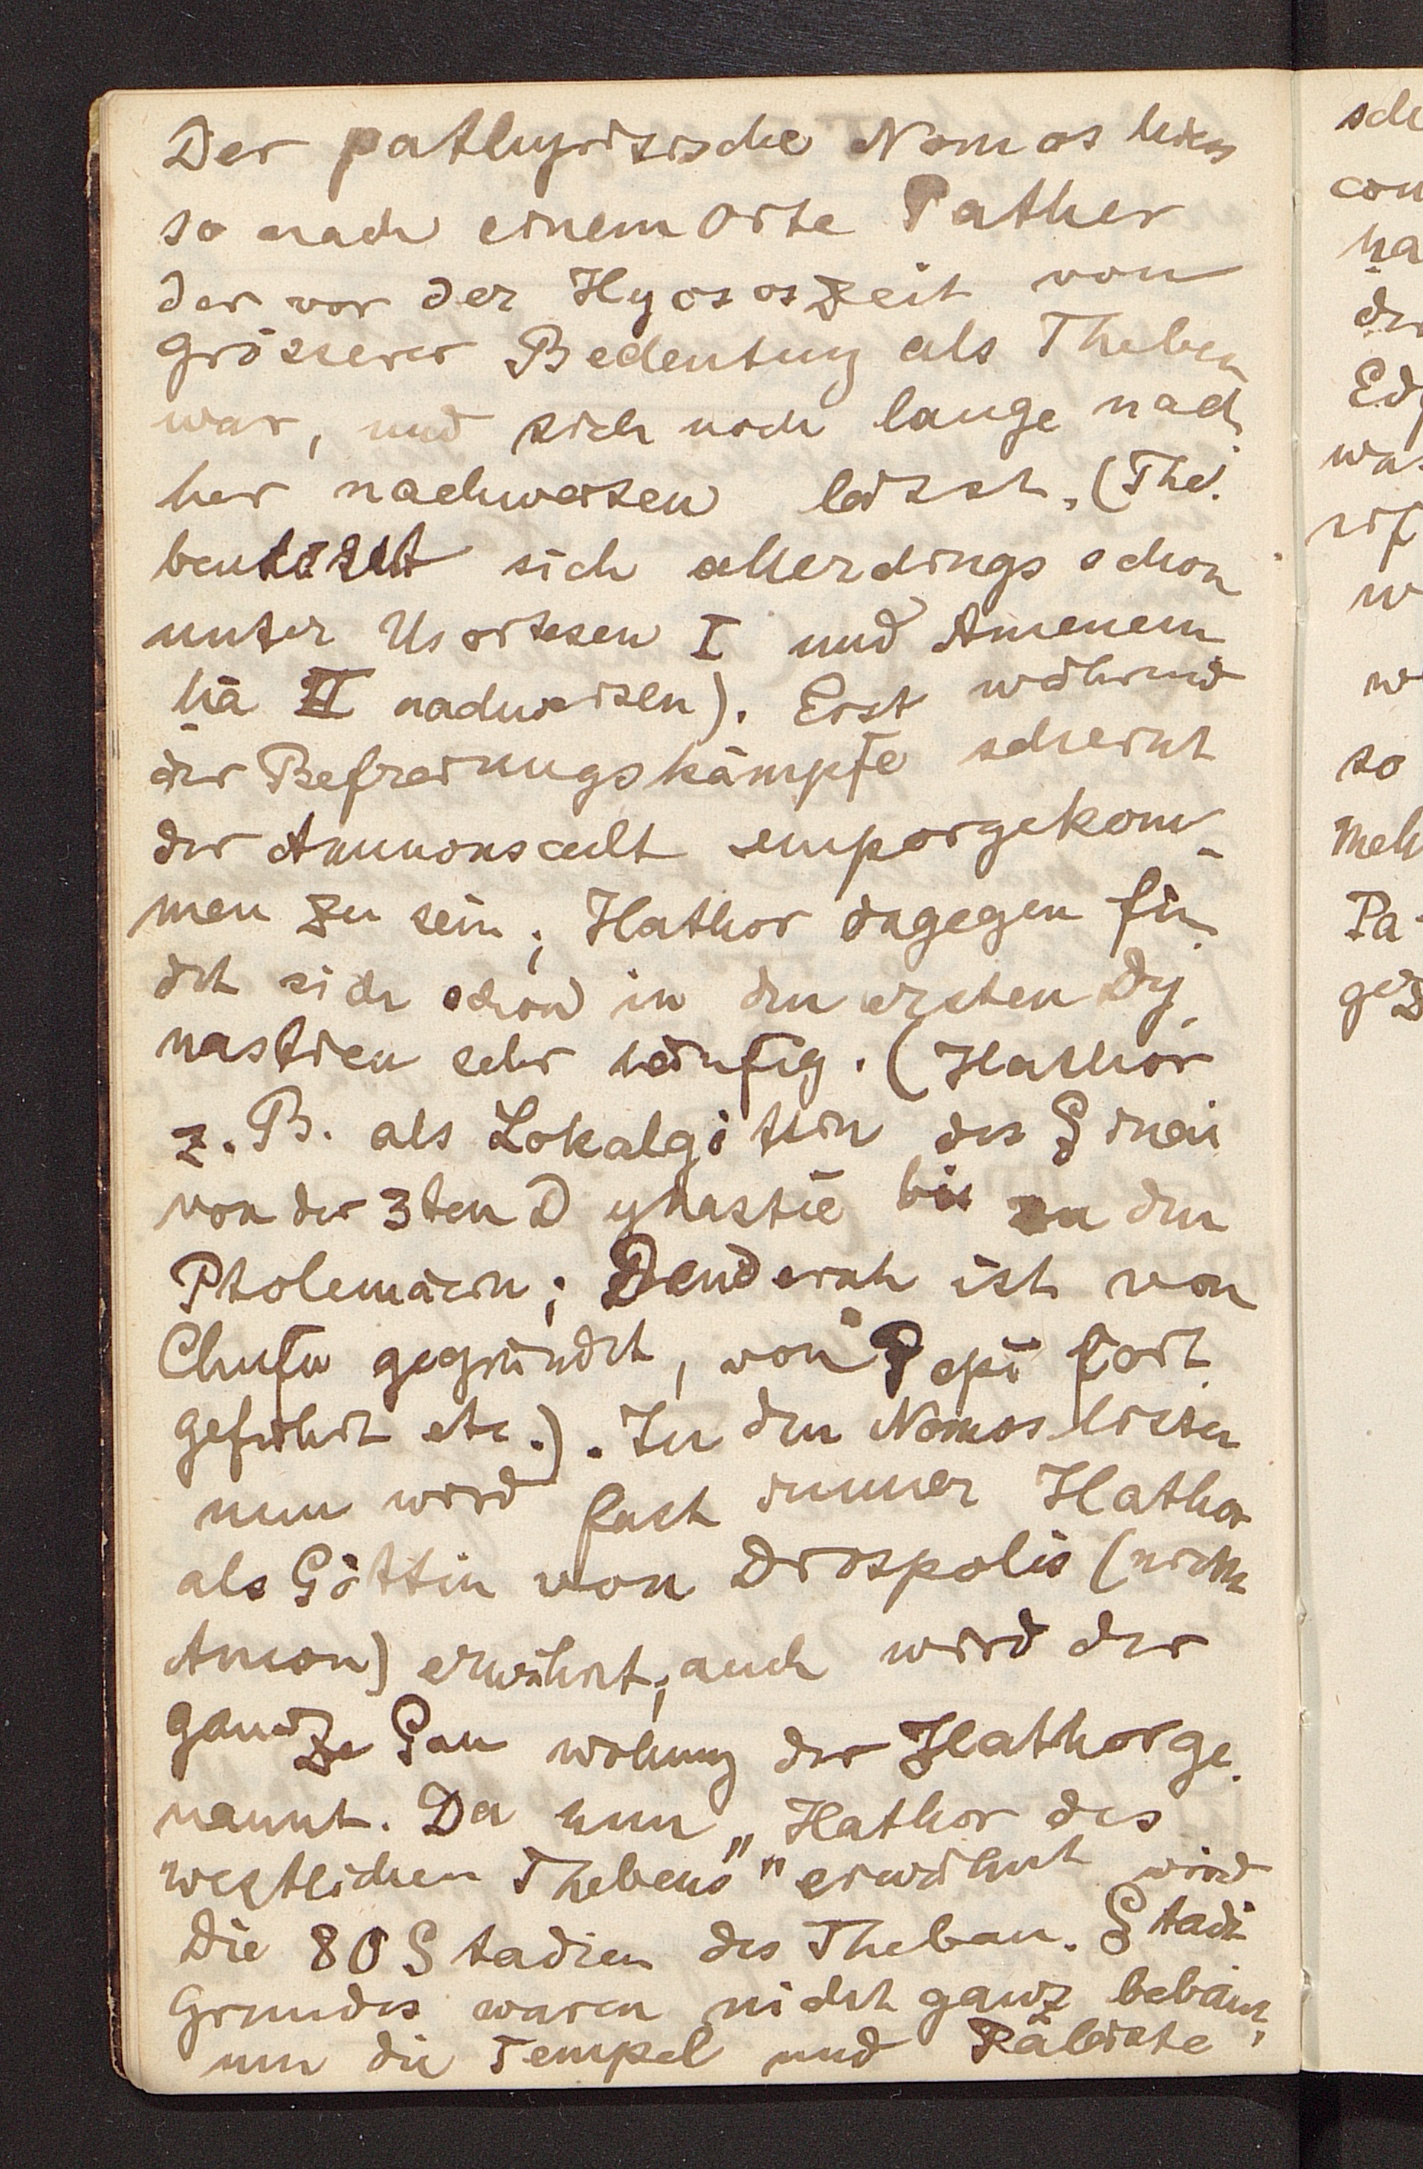 Der pathyrisische Nomos hies
so nach einem Orte Pather
der vor der Hycsoszeit von
grösserer Bedeutung als Theben
war, und sich noch lange nach
her nachweisen lässt. (The
ben lässt sich allerdings schon
unter Usortesen I und Amenem
ḥa II nachweisen). Erst während
der Befreiungskämpfe scheint
der Ammonscult emporgekom-
men zu sein; Hathor dagegen fin
det sich schon in den ersten Dy
nastien sehr häufig. (Hathor
z. B. als Lokalgöttin des Sinai
von der 3ten Dynastie bis zu den
Ptolemäern; Denderah ist von
Chufu gegründet, von Pepi fort
geführt etc.). In den Nomoslisten
nun wird fast immer Hathor
als Göttin von Diospolis (nicht
Amon) erwähnt; auch wird der
ganze Gau wohnung der Hathor ge
nannt. Da nun „Hathor des
westlichen Thebens" erwähnt wird
Die 80 Stadien des Theban. Stadt
Grundes waren nicht ganz bebaut,
um die Tempel und Paläste
sch
con
ḥa
der
Ed
was
rif
w
w
so
meh
Pa
gez